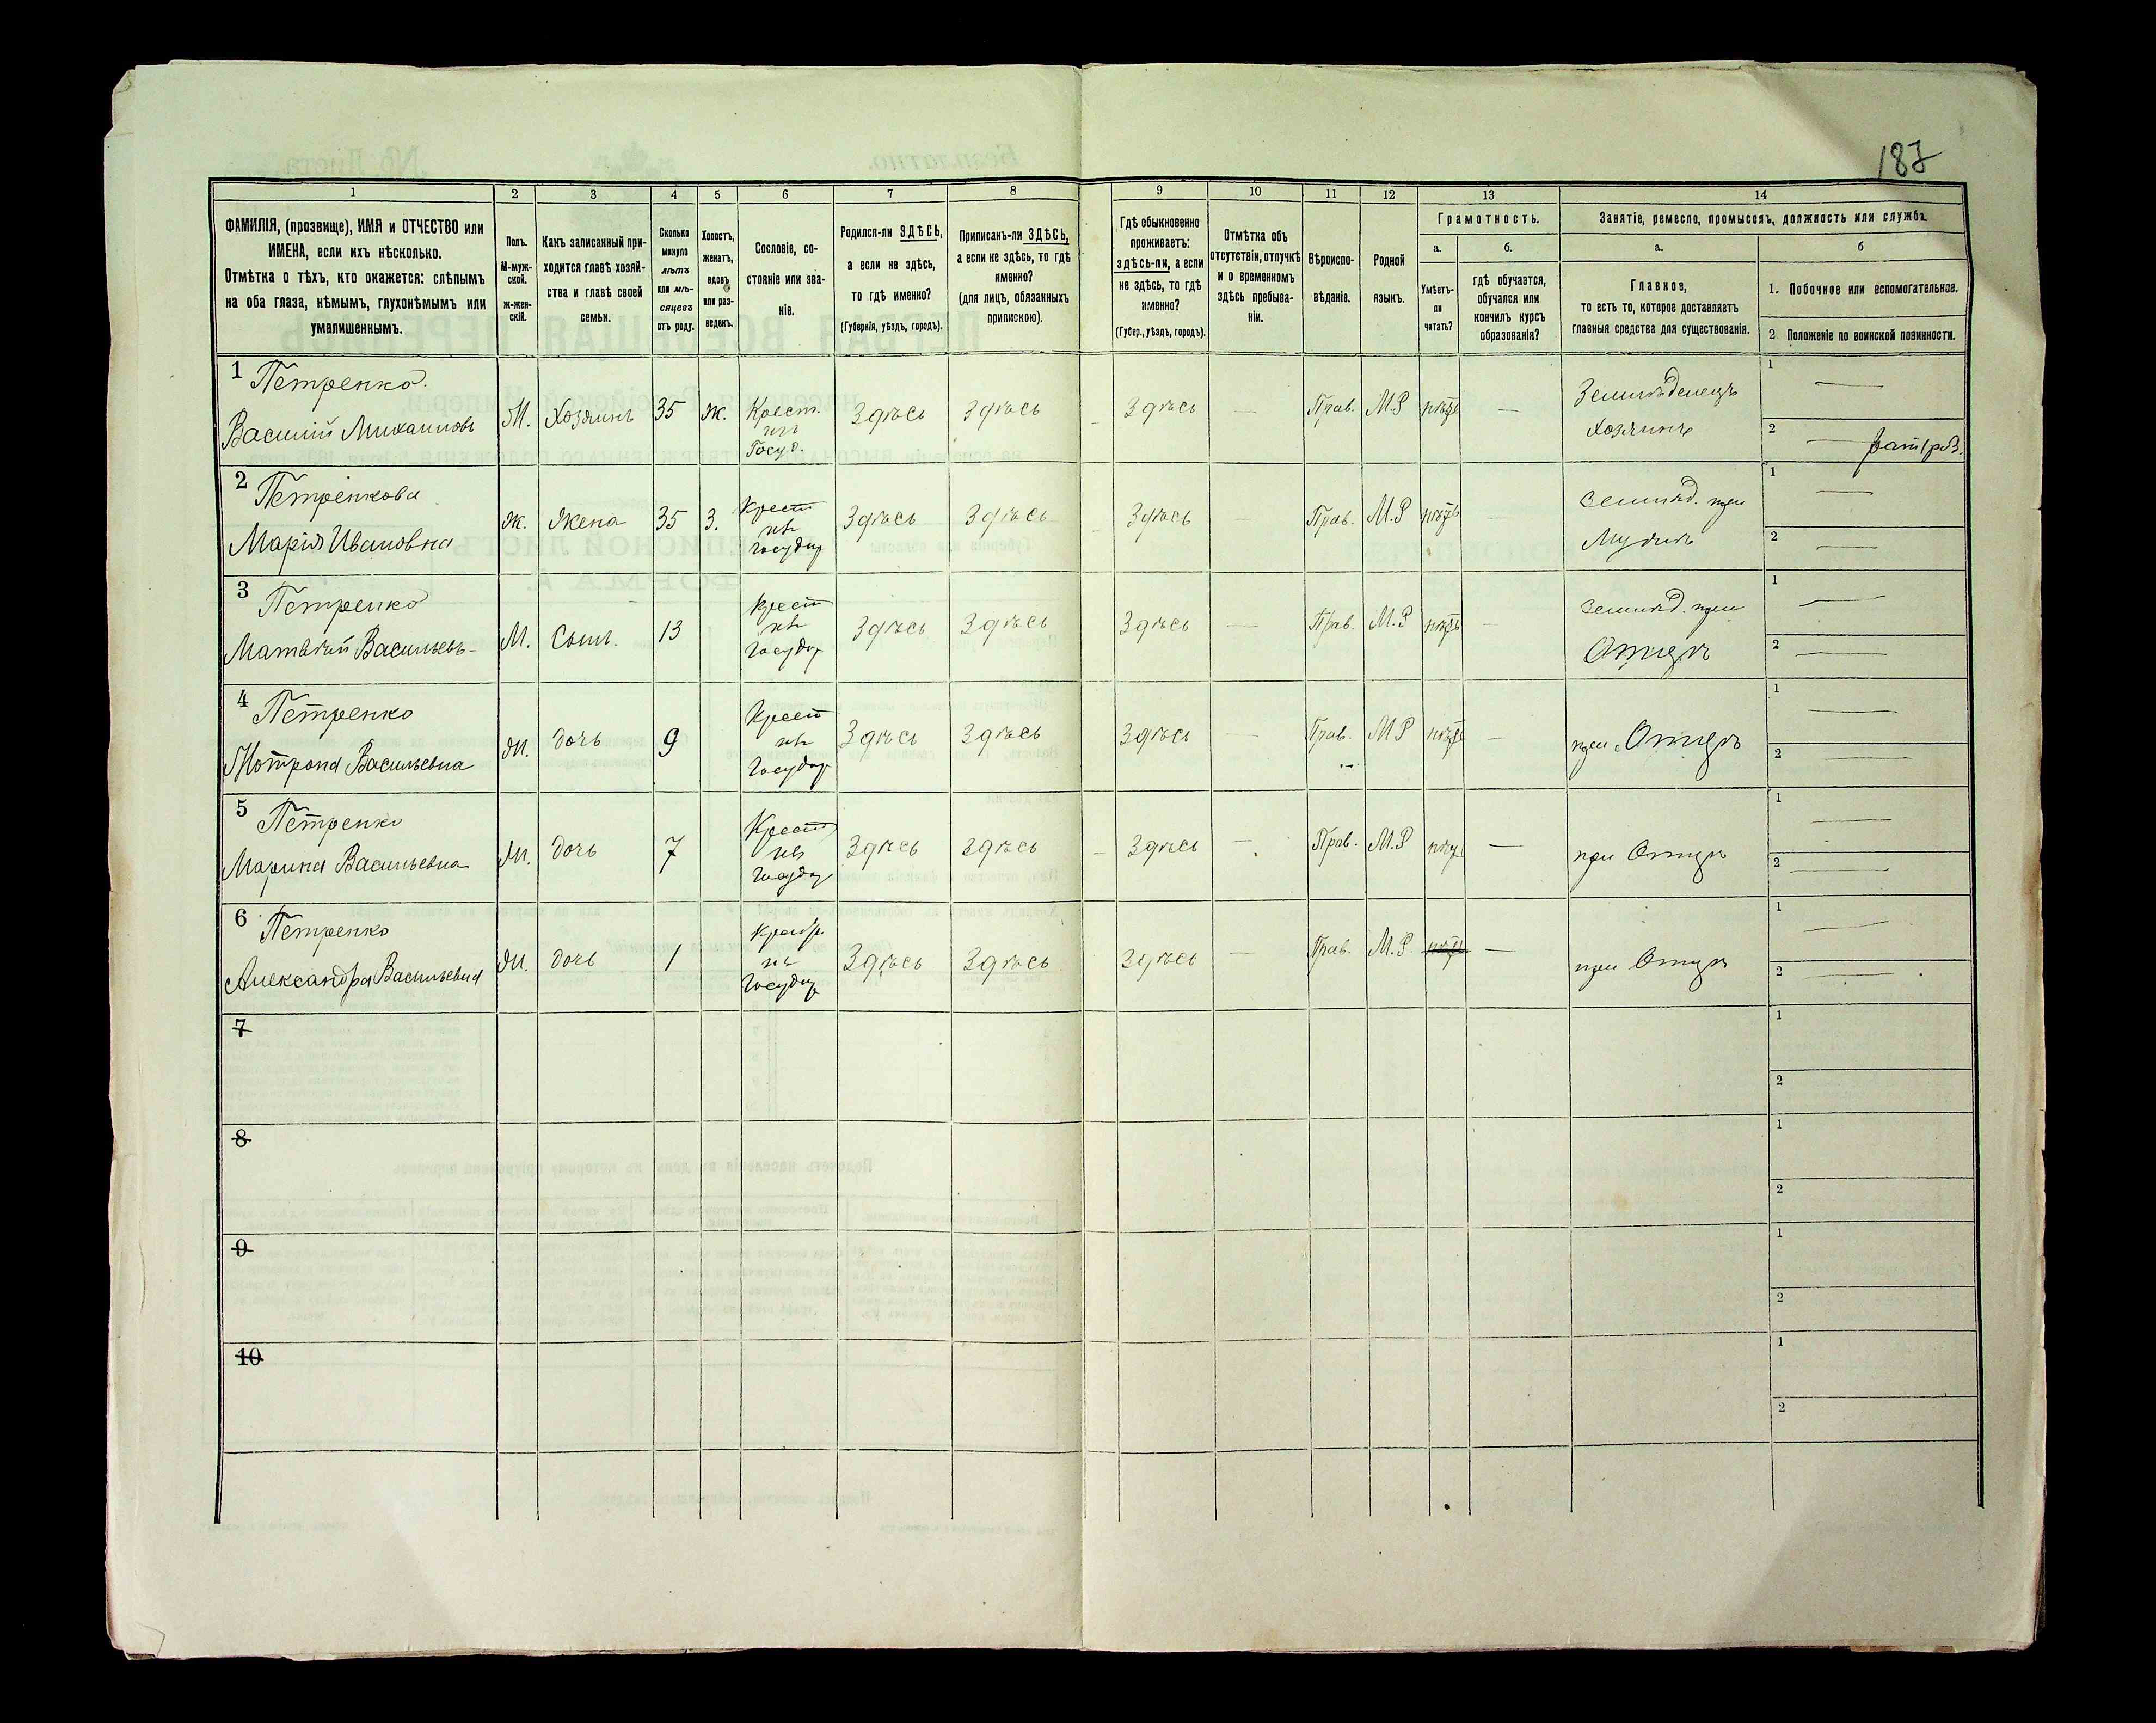 187
1
2
3
4
5
6
7
8
9
10
11
12
13
14
ФАМИЛІЯ, (прозвище), ИМЯ и ОТЧЕСТВО или
ИМЕНА, если ихъ нѣсколько.
Отмѣтка о тѣхъ, кто окажется: слѣпымъ
на оба глаза, нѣмымъ, глухонѣмымъ или
умалишеннымъ.
Полъ.
М-муж-
ской.
ж-жен-
скій.
Какъ записанный при-
ходится главѣ хозяй-
ства и главѣ своей
семьи.
Сколько
минуло
лѣтъ
или мѣ-
сяцевъ
отъ роду.
Холостъ,
женатъ,
вдовъ
или раз-
веденъ.
Сословіе, со-
стояніе или зва-
ніе.
Родился-ли ЗДѢСЬ,
а если не здѣсь,
то гдѣ именно?
(Губернія, уѣздъ, городъ).
Приписанъ-ли ЗДѢСЬ,
а если не здѣсь, то гдѣ
именно?
(для лицъ, обязанныхъ
припискою).
Гдѣ обыкновенно
проживаетъ:
здѣсь-ли, а если
не здѣсь, то гдѣ
именно?
(Губер., уѣздъ, городъ).
Отмѣтка объ
отсутствіи, отлучкѣ
и о временномъ
здѣсь пребыва-
ніи.
Вѣроиспо-
вѣданіе.
Родной
языкъ.
Грамотность.
а.
б.
Умѣетъ-
ли
читать?
гдѣ обучается,
обучался или
кончилъ курсъ
образованія?
Занятіе, ремесло, промыселъ, должность или служба.
а.
б
Главное,
то есть то, которое доставляетъ
главныя средства для существованія.
1. Побочное или вспомогательное.
2. Положеніе по воинской повинности.
1 Петренко.
Василій Михаиловъ
М. Хозяинъ 35 Ж. Крест.
изъ
Госуд.
Здѣсь Здѣсь Здѣсь — Прав. М.Р нѣтъ —
Земледѣлецъ
Хозяинъ
1 —
2 —
2 Петренкова
Марія Ивановна
Ж. Жена 35 З. Крест
изъ
Государ
Здѣсь Здѣсь Здѣсь — Прав. М.Р нѣтъ —
Земледѣ. при
Мужѣ
1 —
2 —
3 Петренко
Матвѣй Васильевъ
М. Сынъ. 13 Крест
изъ
Государ
Здѣсь Здѣсь Здѣсь — Прав. М.Р нѣтъ —
Земледѣ. при
Отцѣ
1 —
2 —
4 Петренко
Мотрона Васильевна
Ж. дочь 9 Крест
изъ
Государ
Здѣсь Здѣсь Здѣсь — Прав. МР нѣтъ —
при Отцѣ
1 —
2 —
5 Петренко
Марина Васильевна
Ж. дочь 7 Крест
изъ
Государ
Здѣсь Здѣсь Здѣсь — Прав. М.Р нѣтъ —
при Отцѣ
1 —
2 —
6 Петренко
Александра Васильевна
Ж. дочь 1 Крест
изъ
Государ
Здѣсь Здѣсь Здѣсь — Прав. М.Р. нѣтъ —
при Отцѣ
1 —
2 —
7
1
2
8
1
2
9
1
2
10
1
2